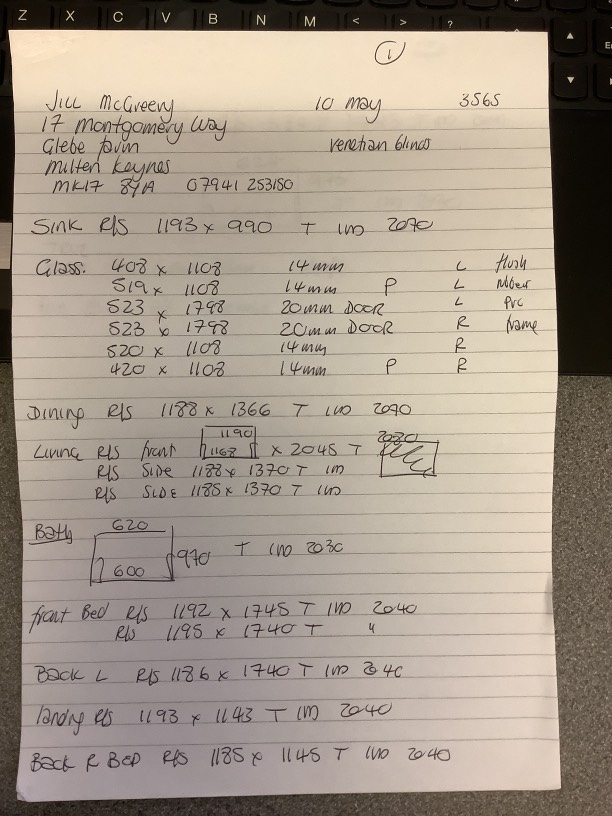 Z X C V B N M < > ?
1
Jill McGreevy 10 May 3565
17 Montgomery Way
Glebe farm venetian blinds
Milten Keynes
MK17 07941 253150
Sink R/S 1193 x 990 T IND 2070
Glass: 408 x 1108 14mm L flush
519 x 1108 14mm P L
523 x 1798 20mm DOOR L PVC
523 x 1798 20mm DOOR R frame
520 x 1108 14mm R
420 x 1108 14mm P R
Dining R/S 1188 x 1366 T IND 2090
Living R/S front 1190 1168 x 2045 T
R/S Side 1188 x 1370 T IND
R/S Side 1185 x 1370 T IND
Bath 620 600 970 T IND 2030
front Bed R/S 1192 x 1745 T IND 2040
R/S 1195 x 1740 T "
Back L R/S 1186 x 1740 T IND
landing R/S 1193 x 1143 T IND 2040
Back R Bed R/S 1185 x 1145 T IND 2040